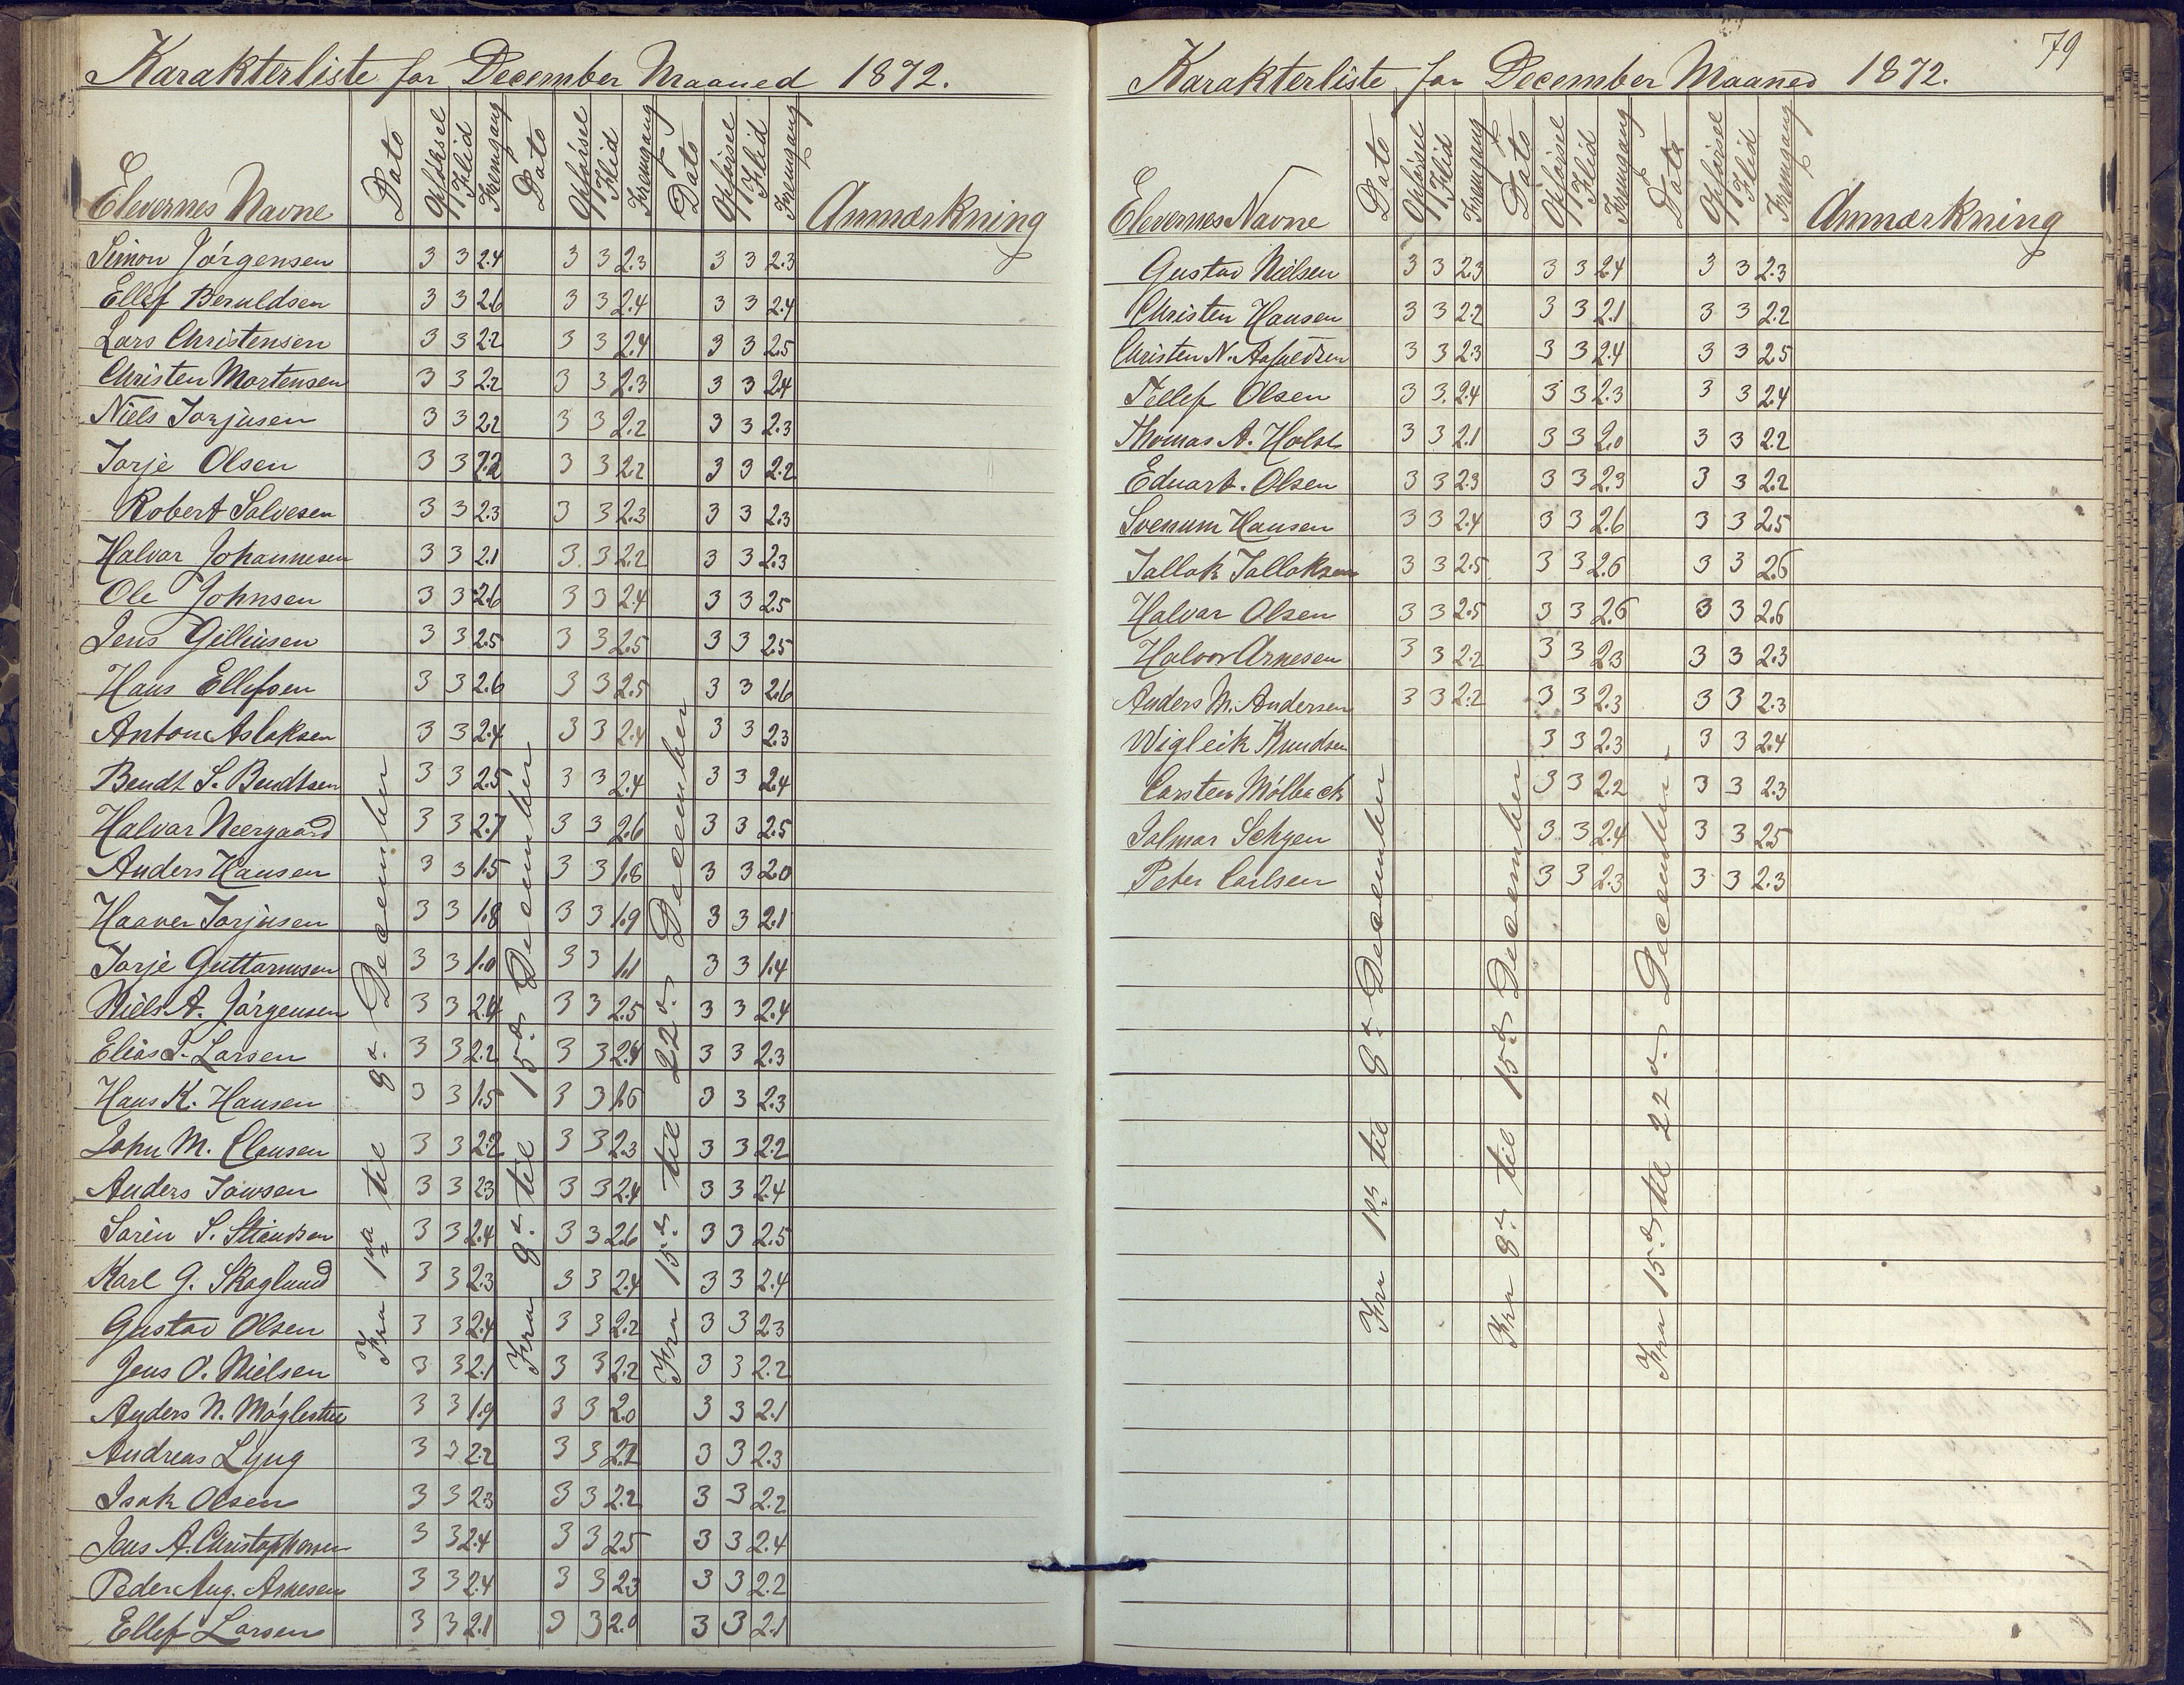 Karakterliste for December Maaned 1872.
Elevernes Navne Dato Opførsel Flid Fremgang Dato Opførsel Flid Fremgang Dato Opførsel Flid Fremgang Anmærkning
Simon Jørgensen 3 3 2.4 3 3 2.3 3 3 2.3
Ellef Beruldsen 3 3 2.6 3 3 2.4 3 3 2.4
Lars Christensen 3 3 2.2 3 3 2.4 3 3 2.5
Christen Mortensen 3 3 2.2 3 3 2.3 3 3 2.4
Niels Torjusen 3 3 2.2 3 3 2.2 3 3 2.3
Torje Olsen 3 3 2.2 3 3 2.2 3 3 2.2
Robert Salvesen 3 3 2.3 3 3 2.3 3 3 2.3
Halvar Johannesen 3 3 2.1 3 3 2.2 3 3 2.3
Ole Johnsen 3 3 2.6 3 3 2.4 3 3 2.5
Jens Gilliusen 3 3 2.5 3 3 2.5 3 3 2.5
Hans Ellefsen 3 3 2.6 3 3 2.5 3 3 2.6
Anton Aslaksen 3 3 2.4 3 3 2.4 3 3 2.3
Bendt S. Bendtsen 3 3 2.5 3 3 2.4 3 3 2.4
Halvar Neergaard 3 3 2.7 3 3 2.6 3 3 2.5
Anders Hansen 3 3 1.5 3 3 1.8 3 3 2.0
Haaver Torjusen 3 3 1.8 3 3 1.9 3 3 2.1
Torje Guttormsen 3 3 1.0 3 3 1.1 3 3 1.4
Niels A. Jørgensen 3 3 2.4 3 3 2.5 3 3 2.4
Elias T. Larsen 3 3 2.2 3 3 2.4 3 3 2.3
Hans K. Hansen 3 3 1.5 3 3 1.6 3 3 2.3
John M. Clausen 3 3 2.2 3 3 2.3 3 3 2.2
Anders 3 3 2.3 3 3 2.4 3 3 2.4
Søren S. 3 3 2.4 3 3 2.6 3 3 2.5
Karl G. Skaglund 3 3 2.3 3 3 2.4 3 3 2.4
Gustav Olsen 3 3 2.4 3 3 2.2 3 3 2.3
Jens O. Nielsen 3 3 2.1 3 3 2.2 3 3 2.2
Anders N. Møglestue 3 3 1.9 3 3 2.0 3 3 2.1
Andreas Lyng 3 3 2.2 3 3 2.2 3 3 2.3
Isak Olsen 3 3 2.3 3 3 2.2 3 3 2.2
Jens A. Christophersen 3 3 2.4 3 3 2.5 3 3 2.4
Peder Aug. Arnesen 3 3 2.4 3 3 2.3 3 3 2.2
Ellef Larsen 3 3 2.1 3 3 2.0 3 3 2.1
Fra 1ste til 8de December
Fra 8de til 15de December
Fra 15de til 22de December
79
Karakterliste for December Maaned 1872.
Elevernes Navne Dato Opførsel Flid Fremgang Dato Opførsel Flid Fremgang Dato Opførsel Flid Fremgang Anmærkning
Gustav Nielsen 3 3 2.3 3 3 2.4 3 3 2.3
Christen Hansen 3 3 2.2 3 3 2.1 3 3 2.2
Christen N. 3 3 2.3 3 3 2.4 3 3 2.5
Tellef Olsen 3 3. 2.4 3 3 2.3 3 3 2.4
Thomas A. Holst 3 3 2.1 3 3 2.0 3 3 2.2
Eduart. Olsen 3 3 2.3 3 3 2.3 3 3 2.2
Svenum Hansen 3 3 2.4 3 3 2.6 3 3 2.5
Tallak Tallaksen 3 3 2.5 3 3 2.6 3 3 2.6
Halvar Olsen 3 3 2.5 3 3 2.6 3 3 2.6
Halvor Arnesen 3 3 2.2 3 3 2.3 3 3 2.3
Anders M. Andersen 3 3 2.2 3 3 2.3 3 3 2.3
Wigleik Knudsen 3 3 2.3 3 3 2.4
Carsten Mølback 3 3 2.2 3 3 2.3
Salmar 3 3 2.4 3 3 2.5
Peter Carlsen 3 3 2.3 3 3 2.3
Fra 1ste til 8de December
Fra 8de til 15de December
Fra 15de til 22de December